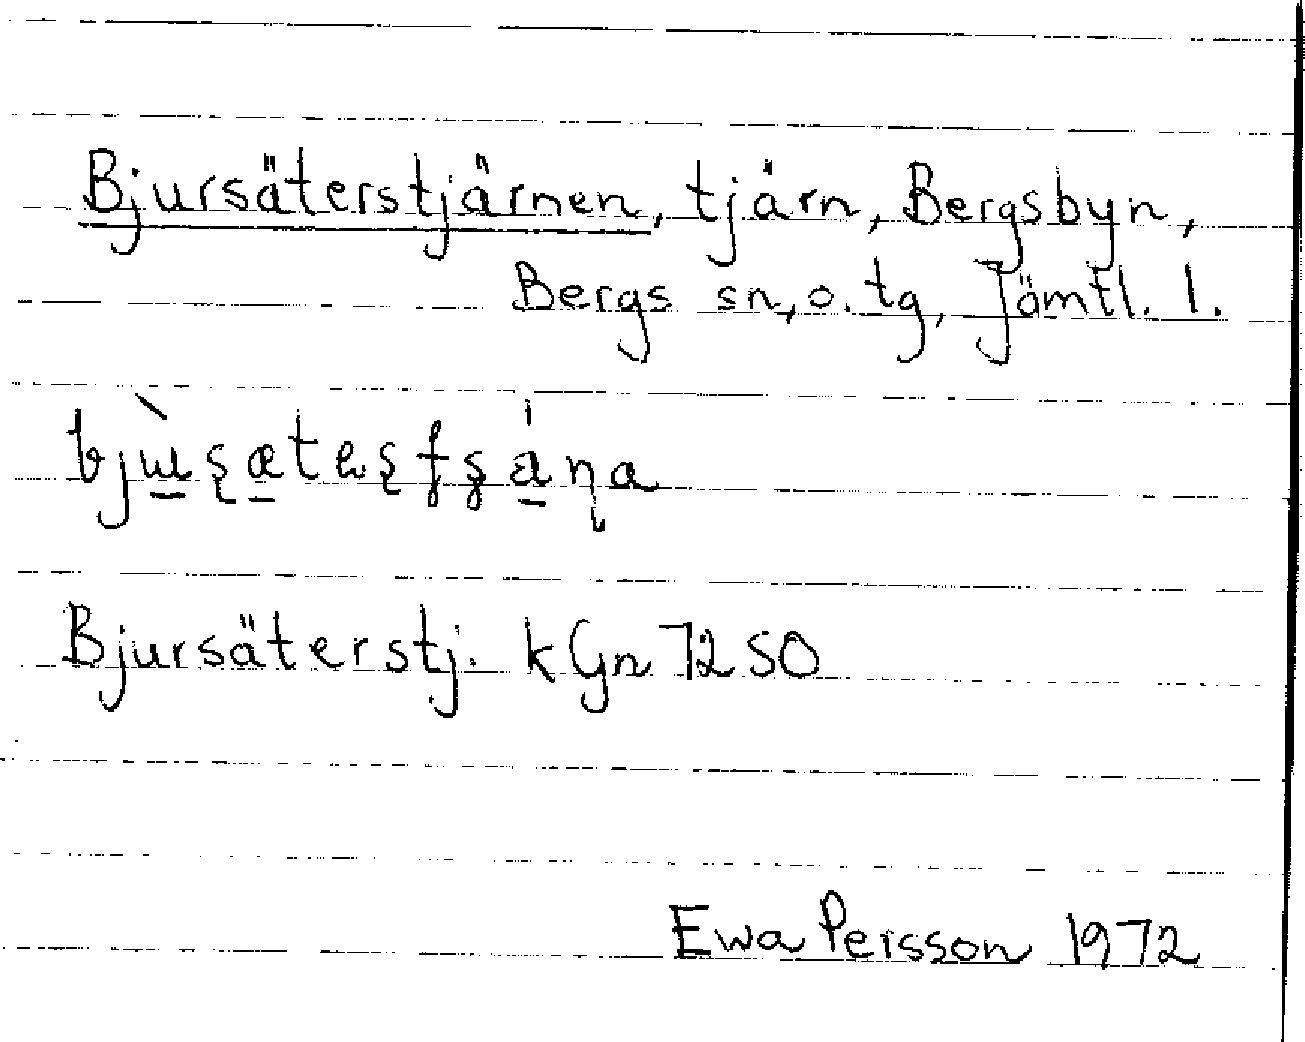 Bjursäterstjärnen, tjärn, Bergsbyn,
Bergs sn, o. tg, Jämtl. l.
Bjursäterstj. kGn 7250
Ewa Persson 1972